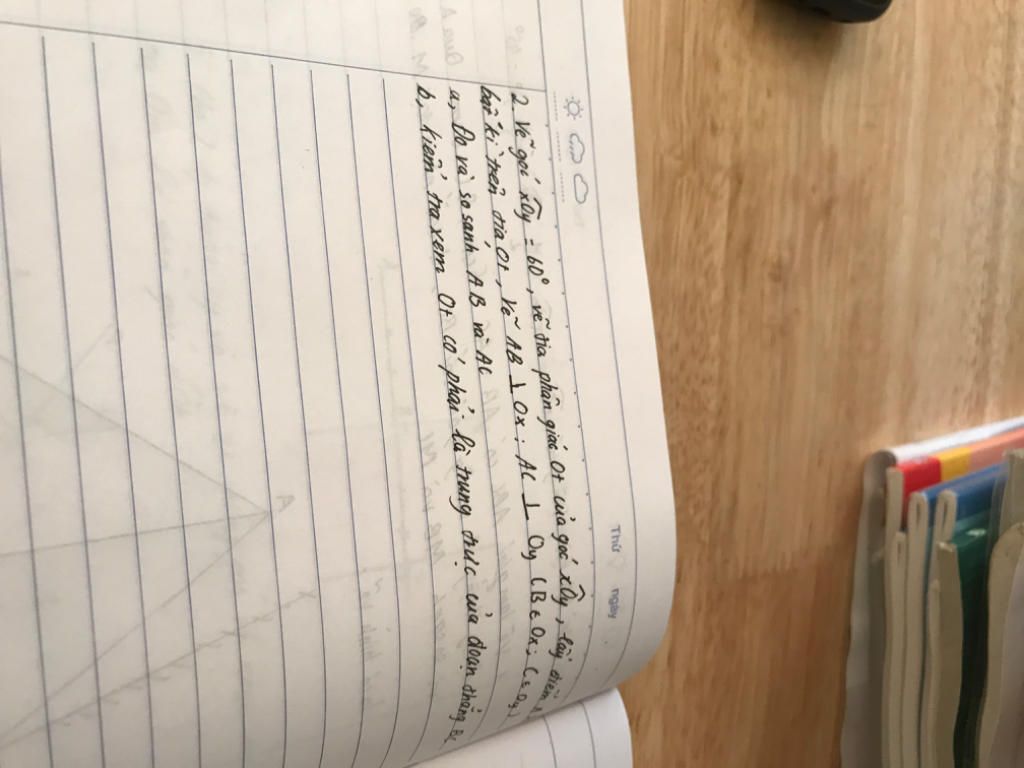 Thứ ngày
2 Vẽ góc xÔy = 60°, vẽ tia phân giác Ot của góc xÔy, lấy điểm A
bất kì trên tia Ot, Vẽ AB ⊥ Ox; AC ⊥ Oy (B ∈ Ox; C ∈ Oy)
a, Đo và so sánh AB và AC
b, kiểm tra xem Ot có phải là trung trực của đoạn thẳng BC
A